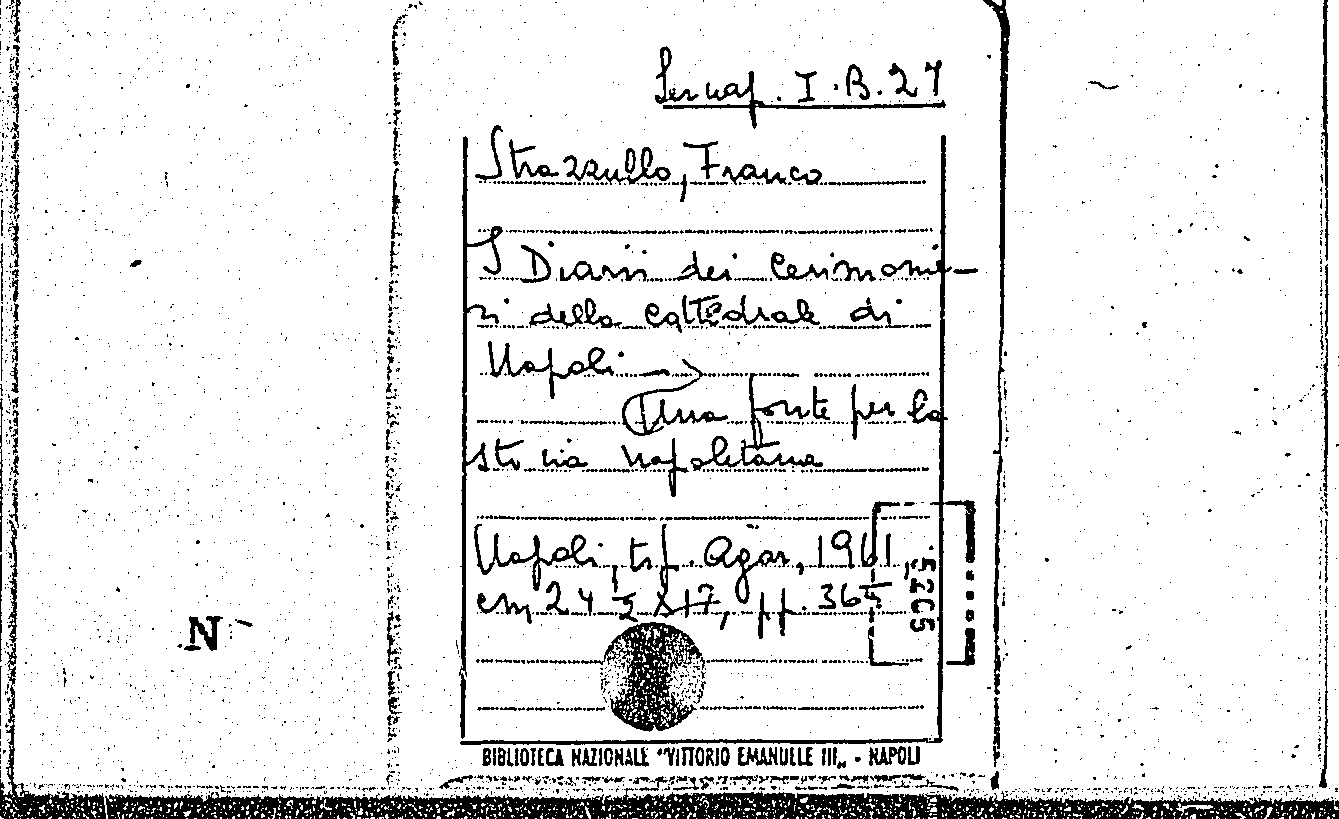 Sernap. I.B.27
Strazzullo, Franco
I Diarii dei Cerimonie-
ri della Cattedrale di
Napoli —
Una fonte per la
storia napoletana
Napoli, tip. Agar, 1961,
cm 24 ½ x 17, pp. 36
5205
N
BIBLIOTECA NAZIONALE "VITTORIO EMANUELE III„ - NAPOLI